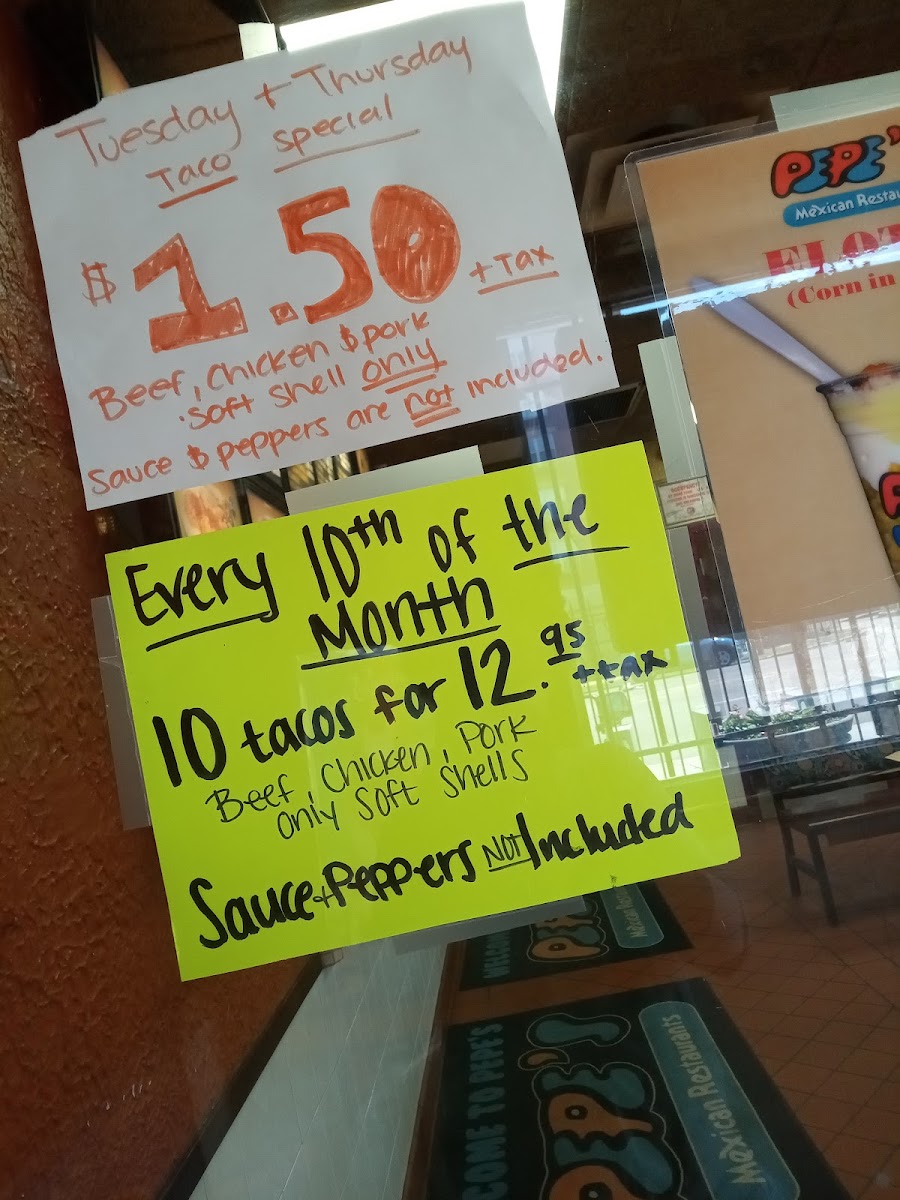 Tuesday + Thursday
Taco special
$1.50 + Tax
Beef, Chicken $ pork
soft shell only
Sauce $ peppers are not included.
Every 10th of the
Month
10 tacos for 12.95 + tax
Beef, Chicken, Pork
only soft shells
Sauce + Peppers NOT Included
PEPE'
Mexican
(Corn in
PEPE'
Mexican Restaurants
COME TO PEPE'S
PEPE'
Mexican Restaurants